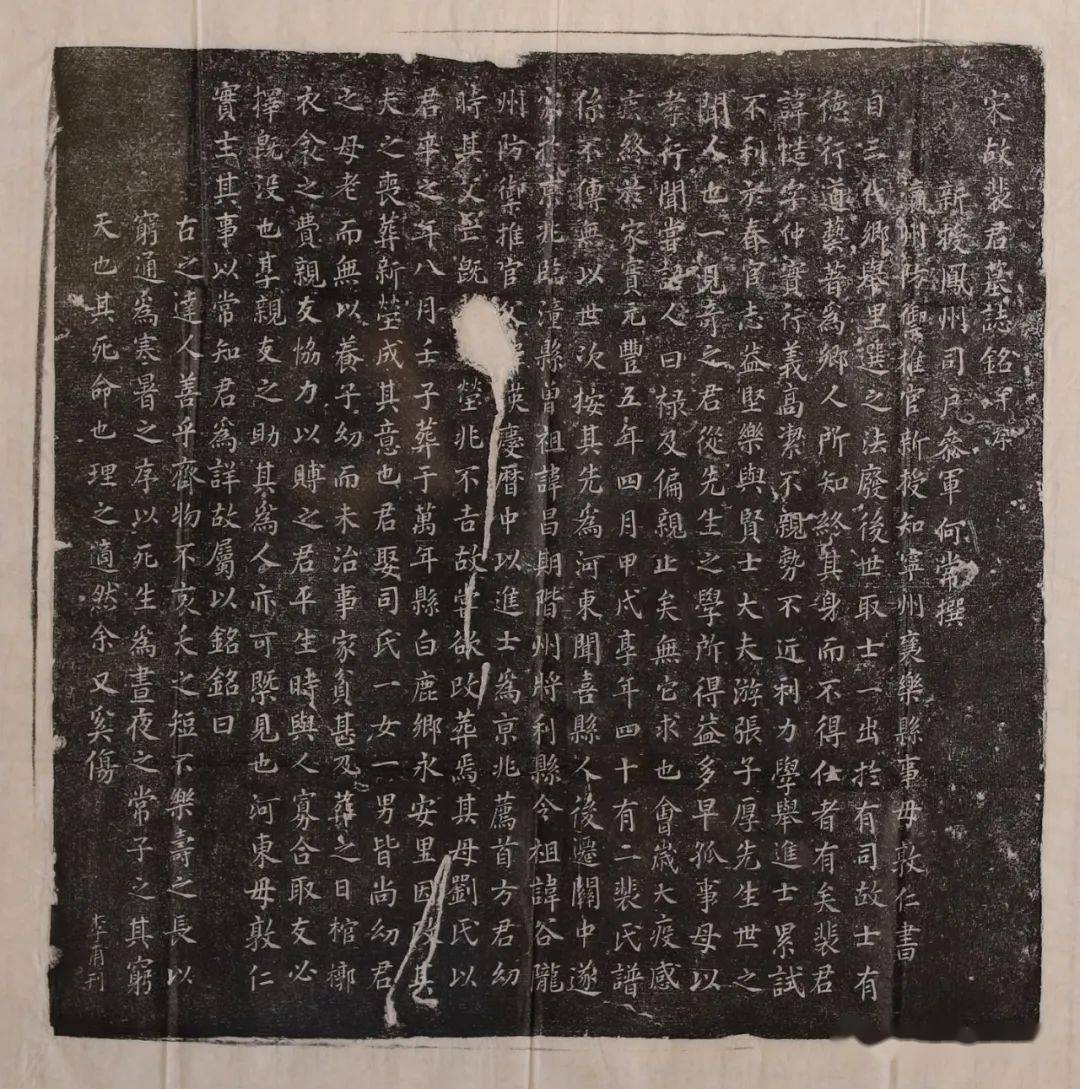 宋故裴君墓誌銘并序
新授鳳州司戶叅軍何常撰
瀛州防禦推官新授知寧州襄樂縣事毋敦仁書
自三代鄉舉里選之法廢後世取士一出於有司故士有
徳行道藝著為鄉人所知終其身而不得仕者有矣裴君
諱造字仲實行義髙潔不親勢不近利力學舉進士累試
不利於春官志益堅樂與賢士大夫游張子厚先生世之
聞人也一見竒之君從先生之學所得益多早孤事母以
孝行聞甞語人曰禄及偏親止矣無它求也會嵗大疫感
疾終於家實元豐五年四月甲戌享年四十有二裴氏譜
係不傳無以世次按其先為河東聞喜縣人後遷關中遂
家於京兆臨潼縣曽祖諱昌期階州將利縣令祖諱谷隴
州防禦推官父 慶曆中以進士為京兆薦首方君幼
時其父塋既 塋兆不吉故甞欲改葬焉其母劉氏以
君卒之年八月壬子葬于萬年縣白鹿鄉永安里因改其
夫之喪葬新塋成其意也君娶司氏一女一男皆尚幼君
之母老而無以養子幼而未治事家貧甚及葬之日棺槨
衣衾之費親友恊力以賻之君平生時與人寡合取友必
擇既没也其親友之助其為人亦可槩見也河東毋敦仁
實主其事以常知君為詳故屬以銘銘曰
古之達人善乎齊物不哀夭之短不樂壽之長以
窮通為寒暑之序以死生為晝夜之常子之其窮
天也其死命也理之適然余又奚傷
李甫刊